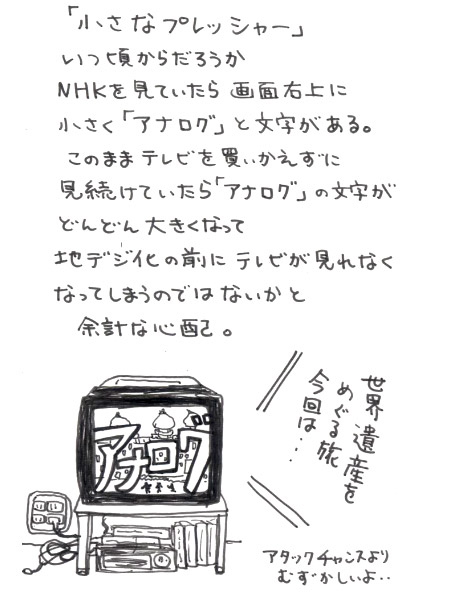 「小さなプレッシャー」
いつ頃からだろうか
NHKを見ていたら 画面右上に
小さく「アナログ」と文字がある。
このままテレビを買いかえずに
見続けていたら「アナログ」の文字が
どんどん大きくなって
地デジ化の前にテレビが見れなく
なってしまうのではないかと
余計な心配。
アナログ
世界遺産を
めぐる旅
今回は・・・
アタックチャンスより
むずかしいよ・・